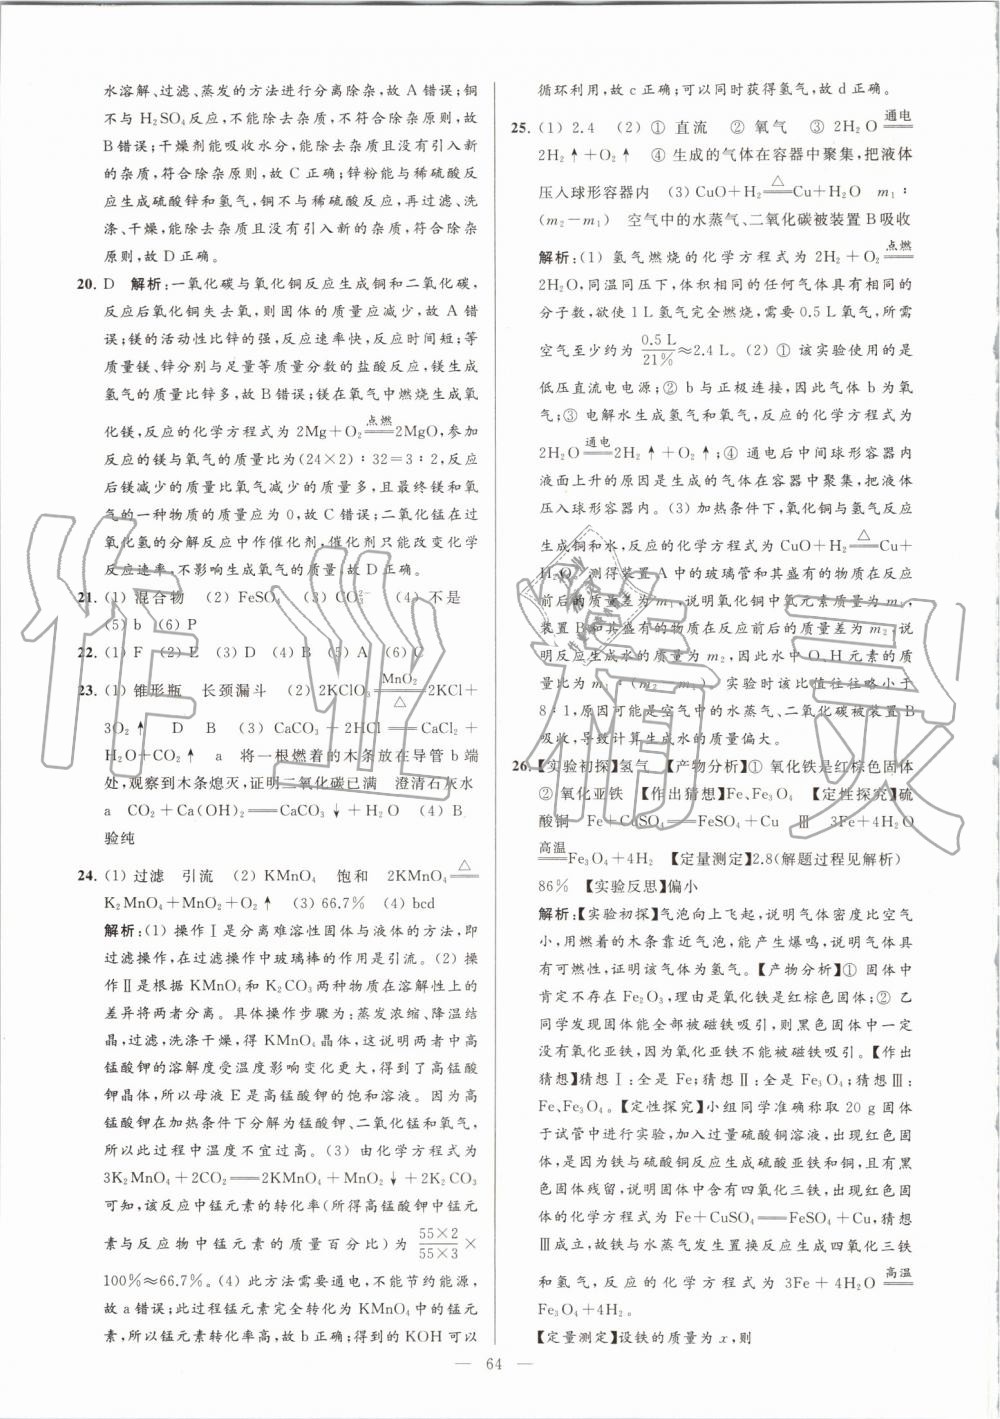 水溶解、过滤、蒸发的方法进行分离除杂,故 A 错误;铜
不与 H₂SO₄反应,不能除去杂质,不符合除杂原则,故
B错误;干燥剂能吸收水分,能除去杂质且没有引入新
的杂质,符合除杂原则,故 C 正确;锌粉能与稀硫酸反
应生成硫酸锌和氢气,铜不与稀硫酸反应,再过滤、洗
涤、干燥,能除去杂质且没有引入新的杂质,符合除杂
原则,故 D 正确。
20. D 解析:一氧化碳与氧化铜反应生成铜和二氧化碳,
反应后氧化铜失去氧,则固体的质量应减少,故 A 错
误;镁的活动性比锌的强,反应速率快,反应时间短;等
质量镁、锌分别与足量等质量分数的盐酸反应,镁生成
氢气的质量比锌多,故 B错误;镁在氧气中燃烧生成氧
化镁,反应的化学方程式为 2Mg+O₂\xlongequal{点燃}2MgO,参加
反应的镁与氧气的质量比为(24×2)∶32=3∶2,反应
后镁减少的质量比氧气减少的质量多,且最终镁和氧
气的一种物质的质量应为 0,故 C 错误;二氧化锰在过
氧化氢的分解反应中作催化剂,催化剂只能改变化学
反应速率,不影响生成氧气的质量,故 D正确。
21. (1) 混合物 (2) FeSO₄ (3) CO₃²⁻ (4) 不是
(5) b (6) P
22. (1) F (2) E (3) D (4) B (5) A (6) C
23. (1) 锥形瓶 长颈漏斗 (2) 2KClO₃\xlongequal[△]{MnO₂}2KCl+
3O₂↑ D B (3) CaCO₃+2HCl══CaCl₂+
H₂O+CO₂↑ a 将一根燃着的木条放在导管 b 端
处,观察到木条熄灭,证明二氧化碳已满 澄清石灰水
a CO₂+Ca(OH)₂══CaCO₃↓+H₂O (4) B
验纯
24. (1) 过滤 引流 (2) KMnO₄ 饱和 2KMnO₄\xlongequal{△}
K₂MnO₄+MnO₂+O₂↑ (3) 66.7% (4) bcd
解析:(1) 操作Ⅰ是分离难溶性固体与液体的方法,即
过滤操作,在过滤操作中玻璃棒的作用是引流。(2) 操
作Ⅱ是根据 KMnO₄和 K₂CO₃两种物质在溶解性上的
差异将两者分离。具体操作步骤为:蒸发浓缩、降温结
晶,过滤,洗涤干燥,得 KMnO₄晶体,这说明两者中高
锰酸钾的溶解度受温度影响变化更大,得到了高锰酸
钾晶体,所以母液 E 是高锰酸钾的饱和溶液。因为高
锰酸钾在加热条件下分解为锰酸钾、二氧化锰和氧气,
所以此过程中温度不宜过高。(3) 由化学方程式为
3K₂MnO₄+2CO₂══2KMnO₄+MnO₂↓+2K₂CO₃
可知,该反应中锰元素的转化率(所得高锰酸钾中锰元
素与反应物中锰元素的质量百分比)为 \frac{55×2}{55×3}×
100%≈66.7%。(4) 此方法需要通电,不能节约能源,
故 a 错误;此过程锰元素完全转化为 KMnO₄中的锰元
素,所以锰元素转化率高,故 b 正确;得到的 KOH 可以
循环利用,故 c 正确;可以同时获得氢气,故 d 正确。
25. (1) 2.4 (2) ① 直流 ② 氧气 ③ 2H₂O\xlongequal{通电}
2H₂↑+O₂↑ ④ 生成的气体在容器中聚集,把液体
压入球形容器内 (3) CuO+H₂\xlongequal{△}Cu+H₂O m₁∶
(m₂−m₁) 空气中的水蒸气、二氧化碳被装置 B吸收
解析:(1) 氢气燃烧的化学方程式为 2H₂+O₂\xlongequal{点燃}
2H₂O,同温同压下,体积相同的任何气体具有相同的
分子数,欲使 1 L 氢气完全燃烧,需要 0.5 L 氧气,所需
空气至少约为 \frac{0.5 L}{21%}≈2.4 L。(2) ① 该实验使用的是
低压直流电电源;② b 与正极连接,因此气体 b 为氧
气;③ 电解水生成氢气和氧气,反应的化学方程式为
2H₂O\xlongequal{通电}2H₂↑+O₂↑;④ 通电后中间球形容器内
液面上升的原因是生成的气体在容器中聚集,把液体
压入球形容器内。(3) 加热条件下,氧化铜与氢气反应
生成铜和水,反应的化学方程式为 CuO+H₂\xlongequal{△}Cu+
H₂O。测得装置 A 中的玻璃管和其盛有的物质在反应
前后的质量差为 m₁,说明氧化铜中氧元素质量为 m₁,
装置 B和其盛有的物质在反应前后的质量差为 m₂,说
明反应生成水的质量为 m₂,因此水中 O、H元素的质
量比为 m₁∶(m₂−m₁) 实验时该比值往往略小于
8∶1,原因可能是空气中的水蒸气、二氧化碳被装置 B
吸收,导致计算生成水的质量偏大。
26. 【实验初探】氢气 【产物分析】① 氧化铁是红棕色固体
② 氧化亚铁 【作出猜想】Fe、Fe₃O₄ 【定性探究】硫
酸铜 Fe+CuSO₄══FeSO₄+Cu Ⅲ 3Fe+4H₂O
\xlongequal{高温}Fe₃O₄+4H₂ 【定量测定】2.8(解题过程见解析)
86% 【实验反思】偏小
解析:【实验初探】气泡向上飞起,说明气体密度比空气
小,用燃着的木条靠近气泡,能产生爆鸣,说明气体具
有可燃性,证明该气体为氢气。【产物分析】① 固体中
肯定不存在 Fe₂O₃,理由是氧化铁是红棕色固体;② 乙
同学发现固体能全部被磁铁吸引,则黑色固体中一定
没有氧化亚铁,因为氧化亚铁不能被磁铁吸引。【作出
猜想】猜想Ⅰ:全是 Fe;猜想Ⅱ:全是 Fe₃O₄;猜想Ⅲ:
Fe、Fe₃O₄。【定性探究】小组同学准确称取 20 g 固体
于试管中进行实验,加入过量硫酸铜溶液,出现红色固
体,是因为铁与硫酸铜反应生成硫酸亚铁和铜,且有黑
色固体残留,说明固体中含有四氧化三铁,出现红色固
体的化学方程式为 Fe+CuSO₄══FeSO₄+Cu,猜想
Ⅲ成立,故铁与水蒸气发生置换反应生成四氧化三铁
和氢气,反应的化学方程式为 3Fe+4H₂O\xlongequal{高温}
Fe₃O₄+4H₂。
【定量测定】设铁的质量为 x,则
— 64 —
作业精灵